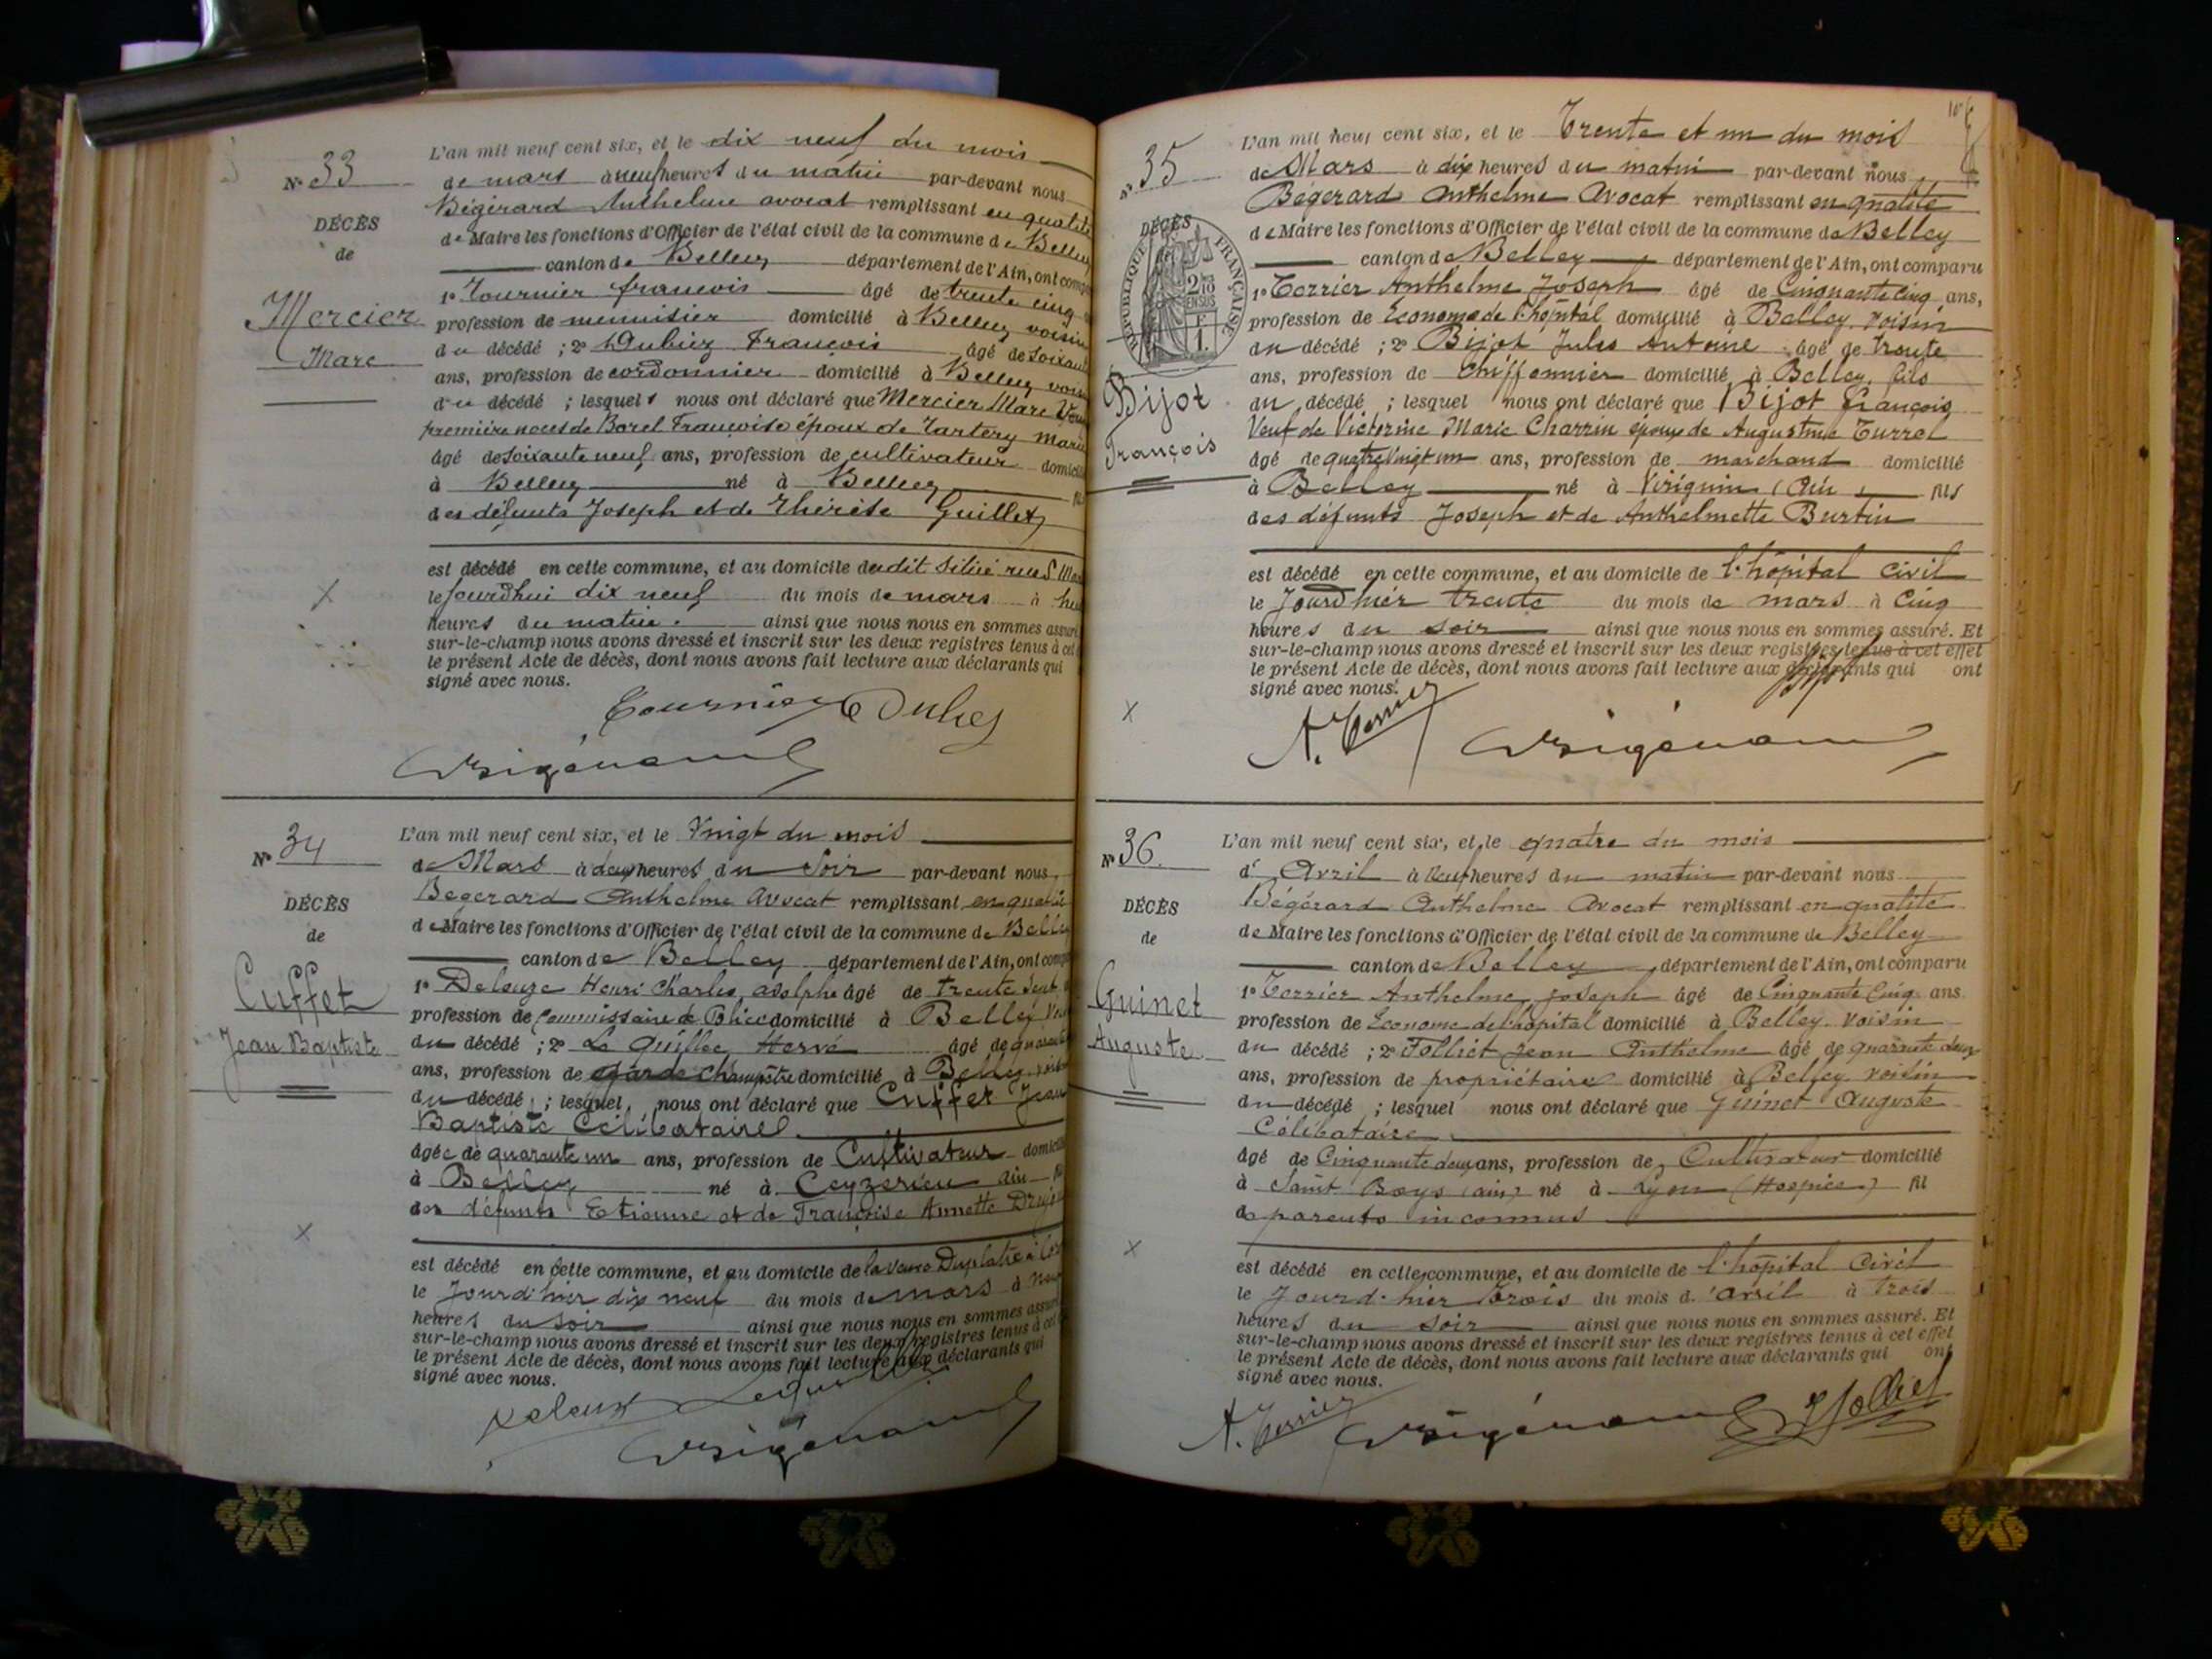 L'an mil neuf cent six, et le dix neuf du mois
N° 33
de mars à neuf heures du matin par-devant nous
Bégérard Anthelme avocat remplissant en qualité
DÉCÈS
de Maire les fonctions d'Officier de l'état civil de la commune de Belley
de
canton de Belley département de l'Ain, ont
1° Tournier françois âgé de trente cinq
Mercier
profession de menuisier domicilié à Belley voisin
Marc
du décédé ; 2° Dubiez François âgé de
ans, profession de cordonnier domicilié à Belley
du décédé ; lesquels nous ont déclaré que Mercier Marc
première noces de Borel Françoise époux de Tartery Marie
âgé de soixante neuf ans, profession de cultivateur
à Belley né à Belley
des défunts Joseph et de Thérèse Guillet
est décédé en cette commune, et au domicile du dit situé rue S
le jourdhui dix neuf du mois de mars à
heures du matin. ainsi que nous nous en sommes
sur-le-champ nous avons dressé et inscrit sur les deux registres tenus à
le présent Acte de décès, dont nous avons fait lecture aux déclarants qui
signé avec nous.
Tournier Dubiez
Bégérard
L'an mil neuf cent six, et le Vingt du mois
N° 34
de Mars à deux heures du Soir par-devant nous
Bégérard Anthelme Avocat remplissant en qualité
DÉCÈS
de Maire les fonctions d'Officier de l'état civil de la commune de Belley
de
canton de Belley département de l'Ain, ont
Cuffet
1° Deleuze Henri Charles adolphe âgé de trente
profession de Commissaire de Police domicilié à Belley
Jean Baptiste
du décédé ; 2° Le Quillec Hervé âgé de
ans, profession de garde Champêtre domicilié à Belley
du décédé ; lesquel nous ont déclaré que Cuffet Jean
Baptiste Célibataire
âgé de quarante un ans, profession de Cultivateur
à Belley né à Ceyzerieu ain
des défunts Etienne et de Françoise Annette
est décédé en cette commune, et au domicile de la veuve Duplatre à
le Jourd'hier dix neuf du mois de mars à
heures du soir ainsi que nous nous en sommes
sur-le-champ nous avons dressé et inscrit sur les deux registres tenus à
le présent Acte de décès, dont nous avons fait lecture aux déclarants qui
signé avec nous.
Deleuze Le Quillec
Bégérard
L'an mil neuf cent six, et le Trente et un du mois
N° 35
de Mars à dix heures du matin par-devant nous
Bégérard Anthelme Avocat remplissant en qualité
DÉCÈS
de Maire les fonctions d'Officier de l'état civil de la commune de Belley
RÉPUBLIQUE FRANÇAISE
canton de Belley département de l'Ain, ont comparu
1° Terrier Anthelme Joseph âgé de Cinquante cinq ans,
profession de Econome de l'hôpital domicilié à Belley voisin
du décédé ; 2° Bijot Jules Antoine âgé de trente
ans, profession de Chiffonnier domicilié à Belley, fils
Bijot
François
du décédé ; lesquel nous ont déclaré que Bijot François
Veuf de Victorine Marie Charrin époux de Augustine Turrel
âgé de quatre vingt un ans, profession de marchand domicilié
à Belley né à Virignin (Ain) fils
des défunts Joseph et de Anthelmette Burtin
est décédé en cette commune, et au domicile de l'hôpital Civil
le Jourd'hier trente du mois de mars à Cinq
heures du soir ainsi que nous nous en sommes assuré. Et
sur-le-champ nous avons dressé et inscrit sur les deux registres tenus à cet effet
le présent Acte de décès, dont nous avons fait lecture aux déclarants qui ont
signé avec nous.
A. Terrier Bégérard
L'an mil neuf cent six, et le quatre du mois
N° 36
d' Avril à neuf heures du matin par-devant nous
Bégérard Anthelme Avocat remplissant en qualité
DÉCÈS
de Maire les fonctions d'Officier de l'état civil de la commune de Belley
de
canton de Belley département de l'Ain, ont comparu
Guinet
1° Terrier Anthelme Joseph âgé de Cinquante Cinq ans
profession de Econome de l'hôpital domicilié à Belley voisin
Auguste
du décédé ; 2° Folliet Jean Anthelme âgé de quarante deux
ans, profession de propriétaire domicilié à Belley voisin
du décédé ; lesquel nous ont déclaré que Guinet Auguste
Célibataire
âgé de Cinquante deux ans, profession de Cultivateur domicilié
à Saint Boys (ain) né à Lyon (Hospice) fil
de parents inconnus
est décédé en cette commune, et au domicile de l'hôpital Civil
le Jourd'hier trois du mois d'avril à trois
heures du soir ainsi que nous nous en sommes assuré. Et
sur-le-champ nous avons dressé et inscrit sur les deux registres tenus à cet effet
le présent Acte de décès, dont nous avons fait lecture aux déclarants qui ont
signé avec nous.
A. Terrier Bégérard Folliet